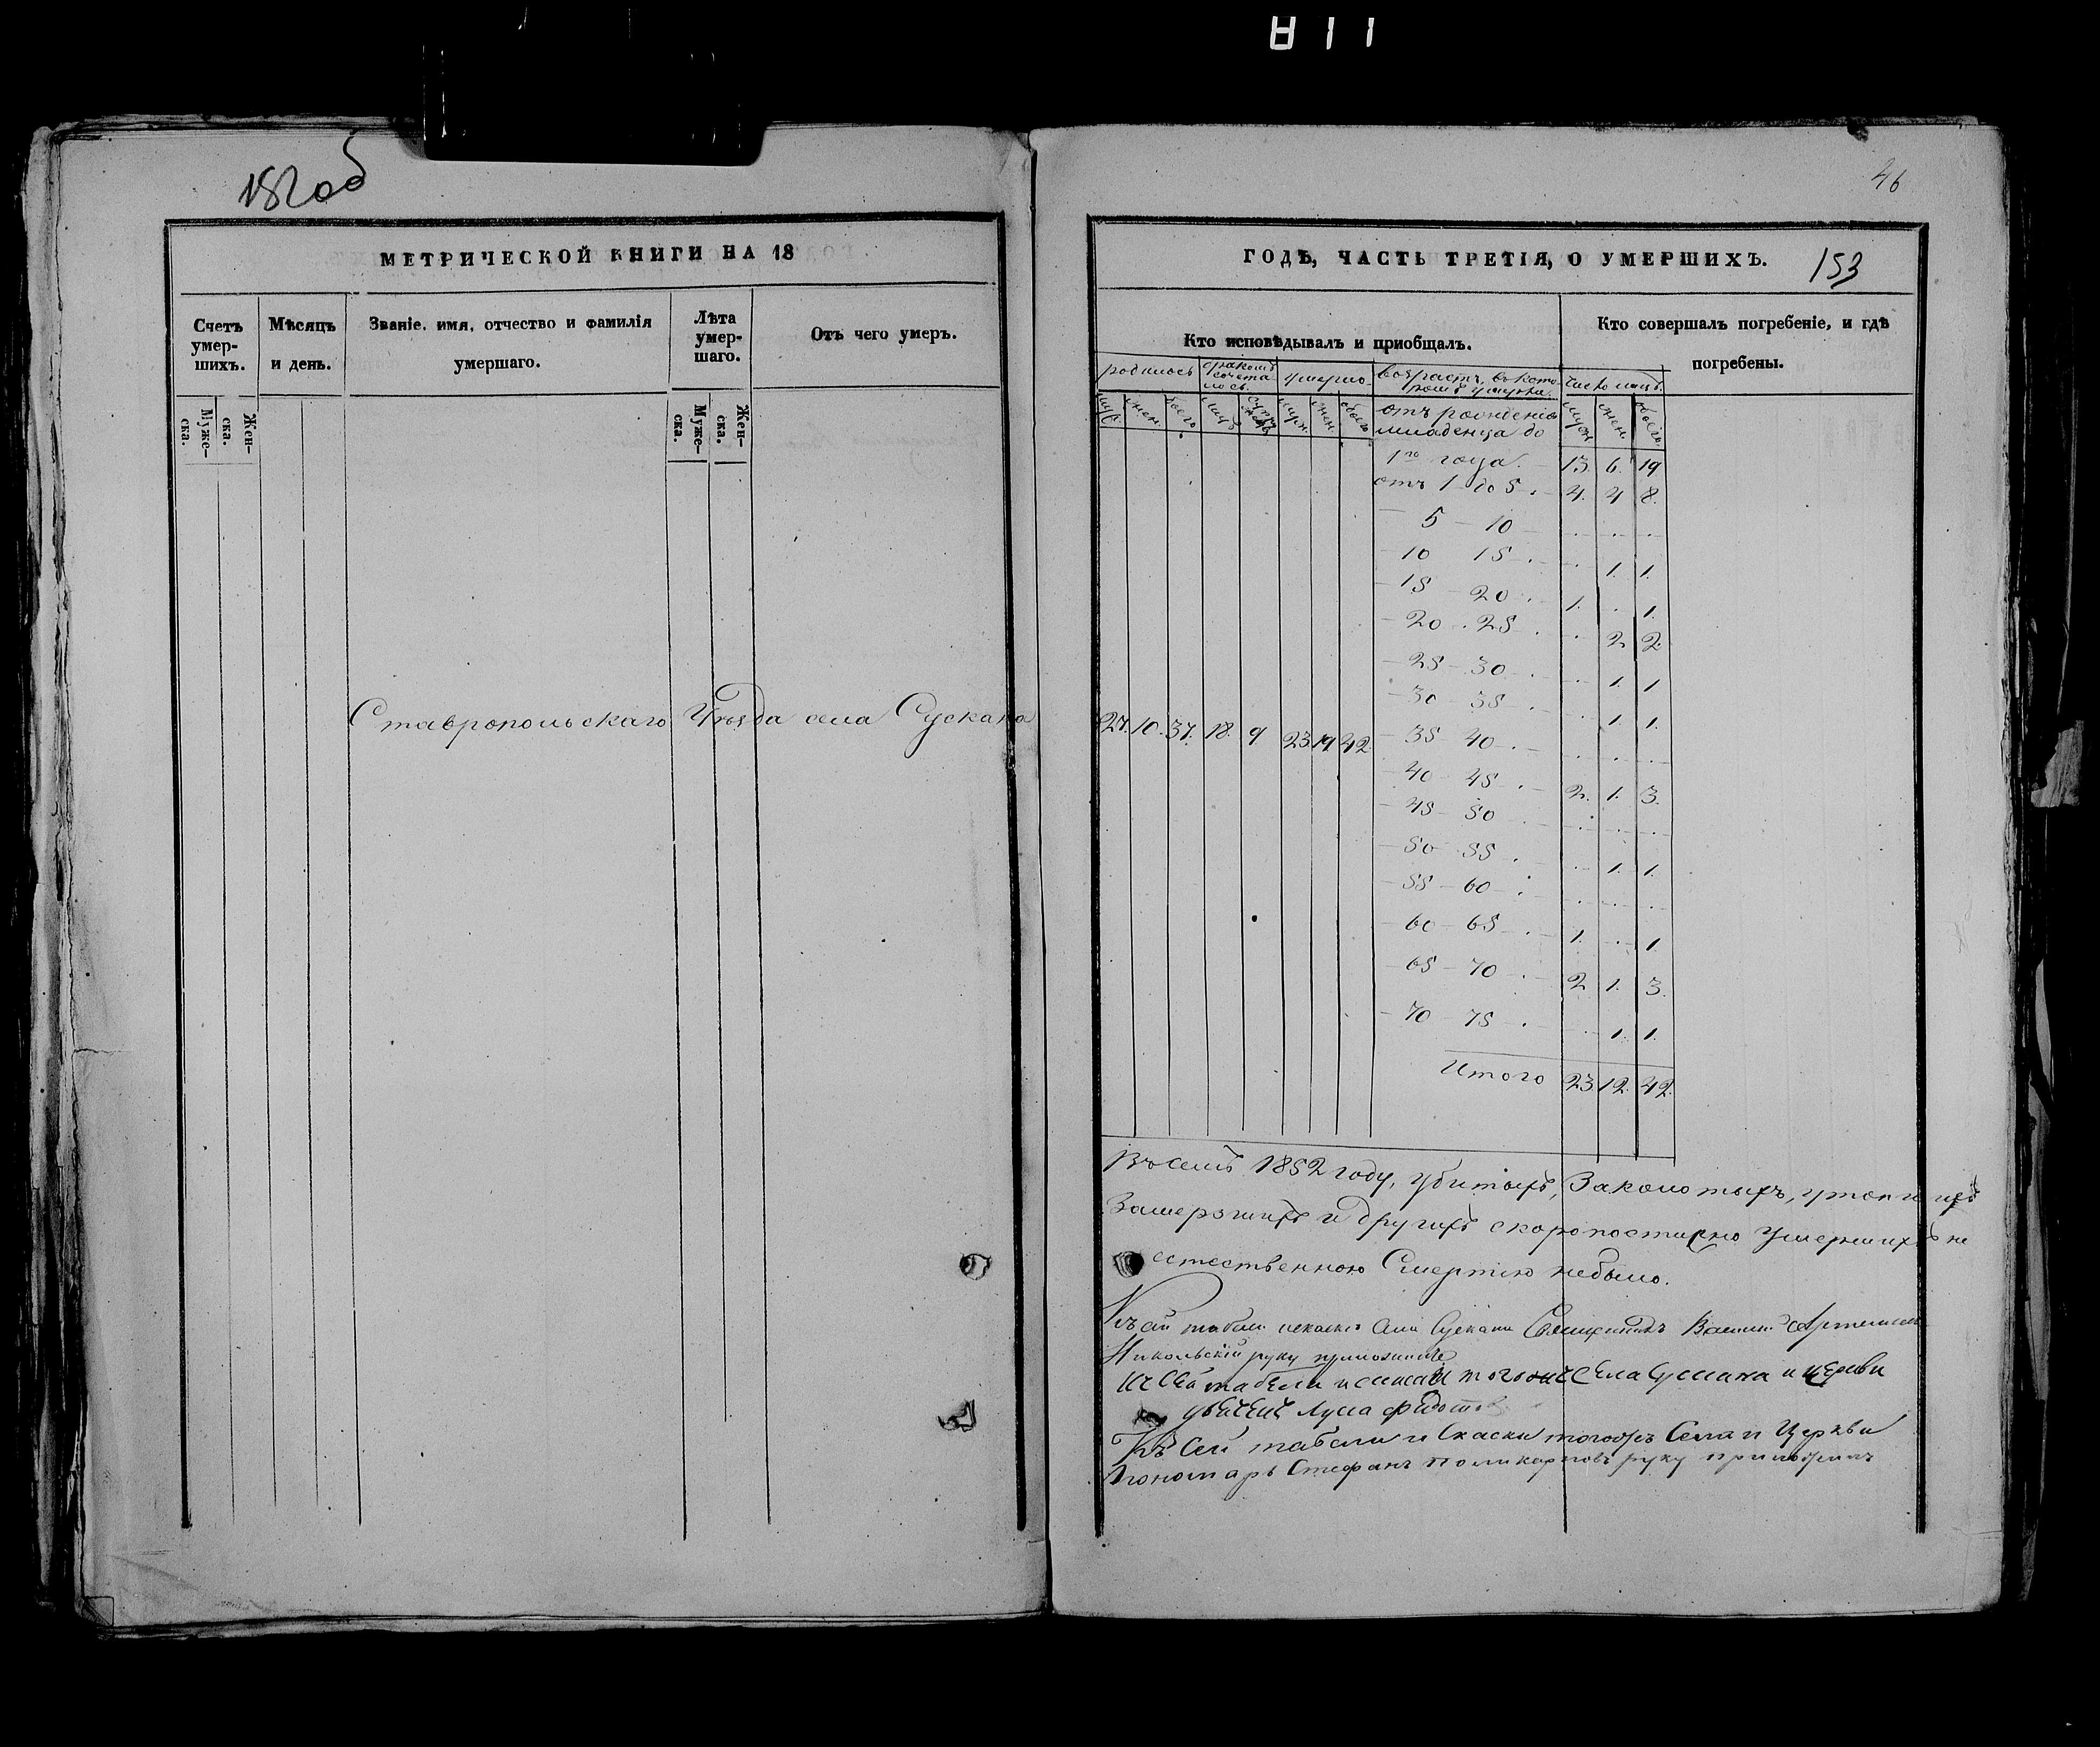 811
152об
МЕТРИЧЕСКОЙ КНИГИ НА 18
Счетъ умер-шихъ.
Муже-ска.
Жен-ска.
Мѣсяцъ и день.
Званіе, имя, отчество и фамилія умершаго.
Лѣта умер-шаго.
Муже-ска.
Жен-ска.
Отъ чего умеръ.
Ставропольскаго Уѣзда села Сускана
46
ГОДЪ, ЧАСТЬ ТРЕТІЯ, О УМЕРШИХЪ.
153
Кто исповѣдывалъ и приобщалъ.
Кто совершалъ погребеніе, и гдѣ погребены.
родилось
бракомъ сочеталось
умерло
возрастъ, въ которомъ умерли.
число лицъ
муж. жен. обоего лицъ муж. жен. обоего
муж. жен. обоего
отъ рожденія
младенца до
1го года. 13. 6. 19
отъ 1 до 5 4. 4 8.
5 - 10
10 15 1. 1.
15 - 20 1. 1.
20 25 2 2
25 - 30 1. 1
30 - 35 1. 1.
27. 10. 37. 18. 9 23 19 42
35 - 40
40 45 2. 1. 3.
45 50
50 55 1. 1.
55 - 60
60 - 65 1. 1
65 - 70 2 1. 3.
70 - 75 1. 1.
Итого 23. 12. 42.
Въ семъ 1852 году, убитыхъ, Заколотыхъ, утопшихъ
Замерзшихъ и другихъ скоропостижно Умершихъ не
естественною Смертію небыло.
Къ сей табели Села Сускана Священникъ
Никольскій руку приложилъ
Къ сей табели тогоже Села Сускана и церкви
Лука Федотов
Къ Сей табели и Сказки тогожъ Села и Церкви
Пономарь Стефанъ Поликарповъ руку приложилъ